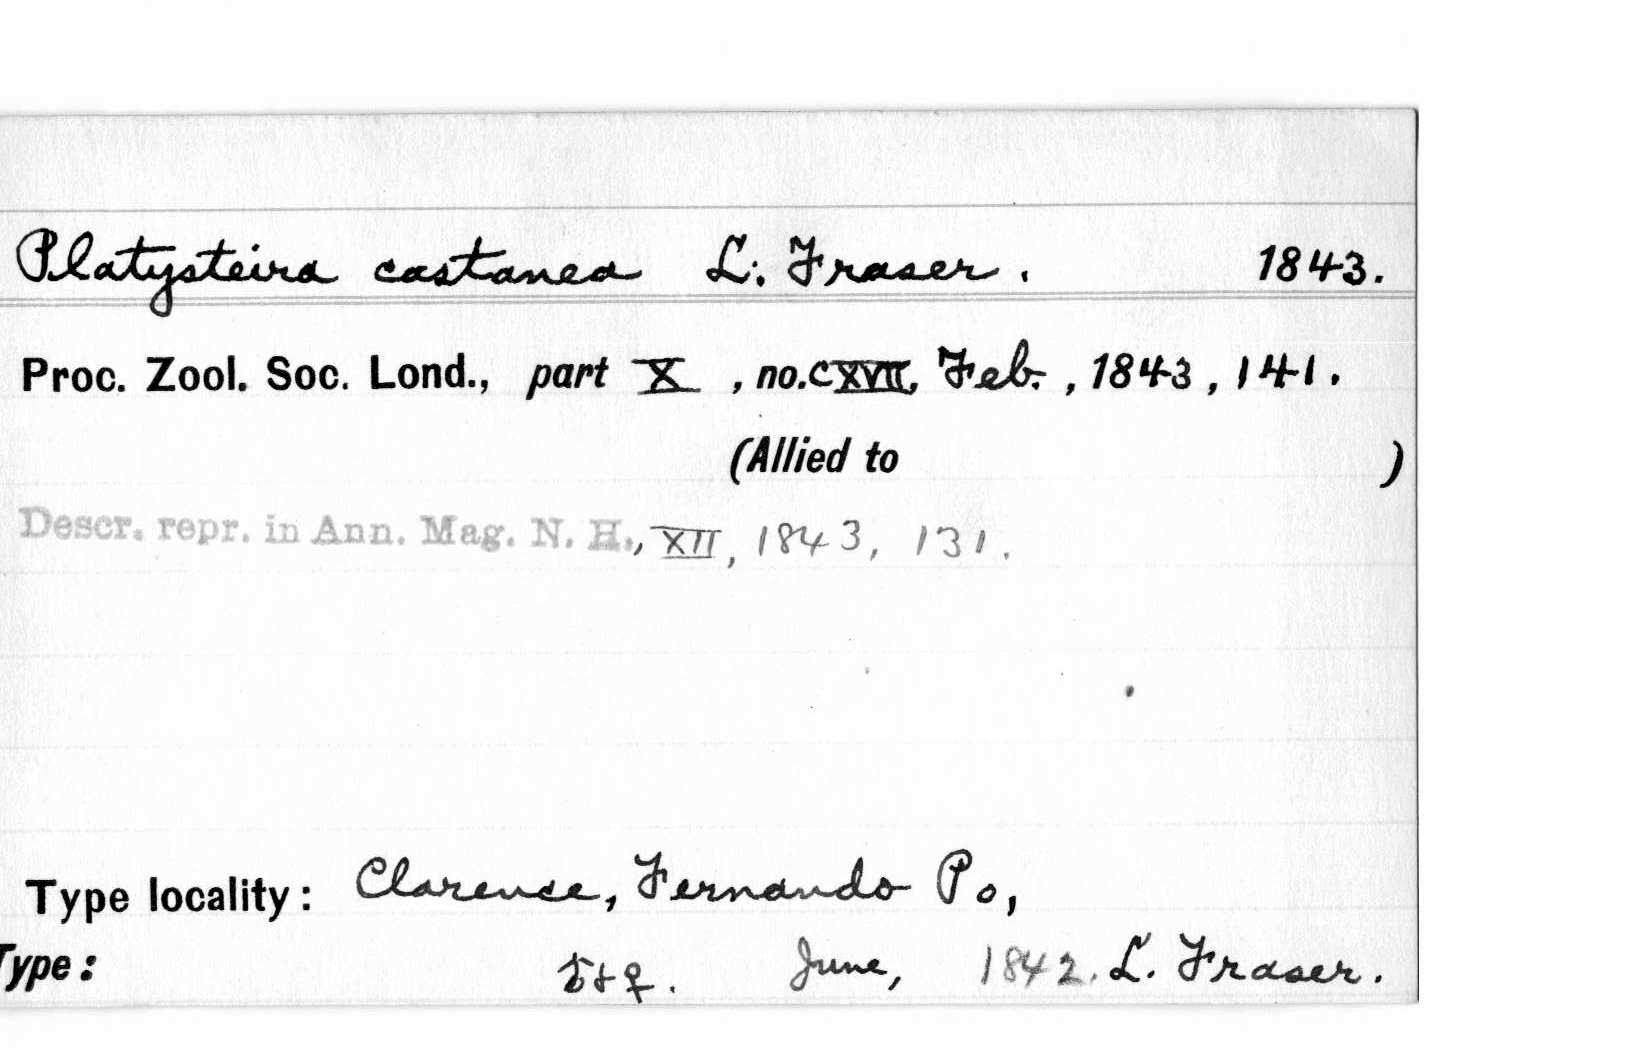 Platysteira castanea L. Fraser. 1843.
Proc. Zool. Soc. Lond., part X, no. CXVII, Feb., 1843, 141.
(Allied to )
Descr. repr. in Ann. Mag. N. H., XII, 1843, 131.
Type locality: Clarence, Fernando Po,
Type: ♂ + ♀. June, 1842. L. Fraser.